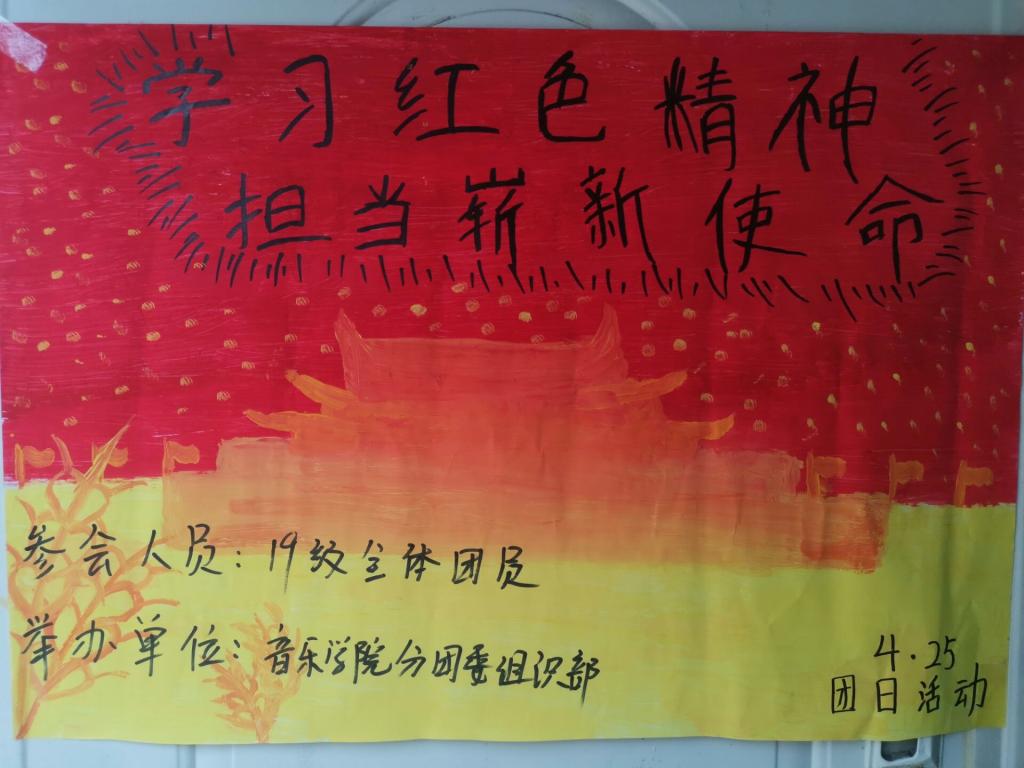 学习红色精神
担当崭新使命
参会人员:19级全体团员
举办单位:音乐学院分团委组织部
4.25
团日活动